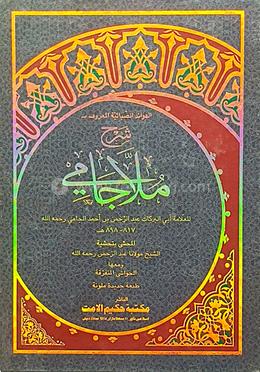 الفوائد الضيائية المعروف بـ
شرح
ملا جامي
للعلامة أبي البركات عبد الرحمن بن أحمد الجامي رحمه الله
٨١٧-٨٩٨ هـ
المحشى بتحشية
الشيخ مولانا عبد الرحمن رحمه الله
ومعها
الحواشي المتفرقة
طبعة جديدة ملونة
الناشر
مكتبة حكيم الامت